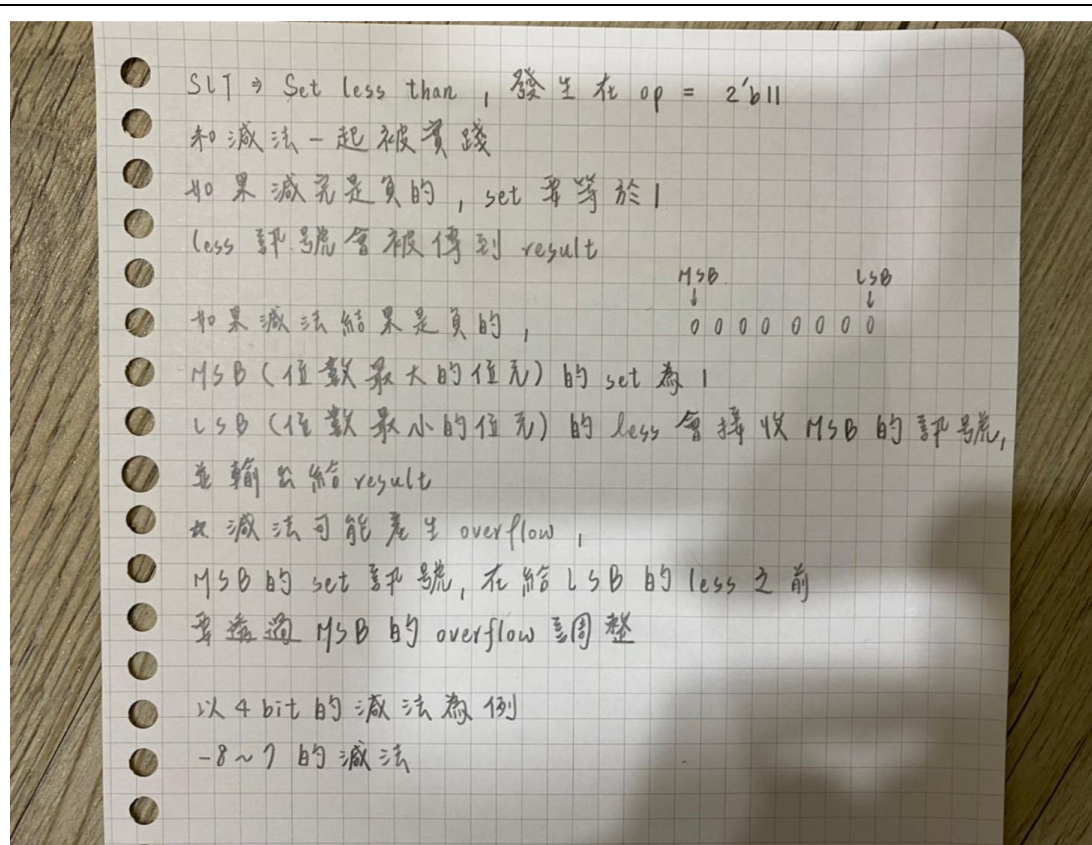 SLT ⇒ Set less than , 發生在 op = 2'b11
和減法一起被實踐
如果減完是負的 , set 要等於 1
less 訊號會被傳到 result
MSB LSB
↓ ↓
如果減法結果是負的 , 0 0 0 0 0 0 0 0
MSB (位數最大的位元) 的 set 為 1
LSB (位數最小的位元) 的 less 會接收 MSB 的訊號,
並輸出給 result
減法可能產生 overflow ,
MSB 的 set 訊號, 在給 LSB 的 less 之前
要透過 MSB 的 overflow 調整
以 4 bit 的減法為例
-8~7 的減法